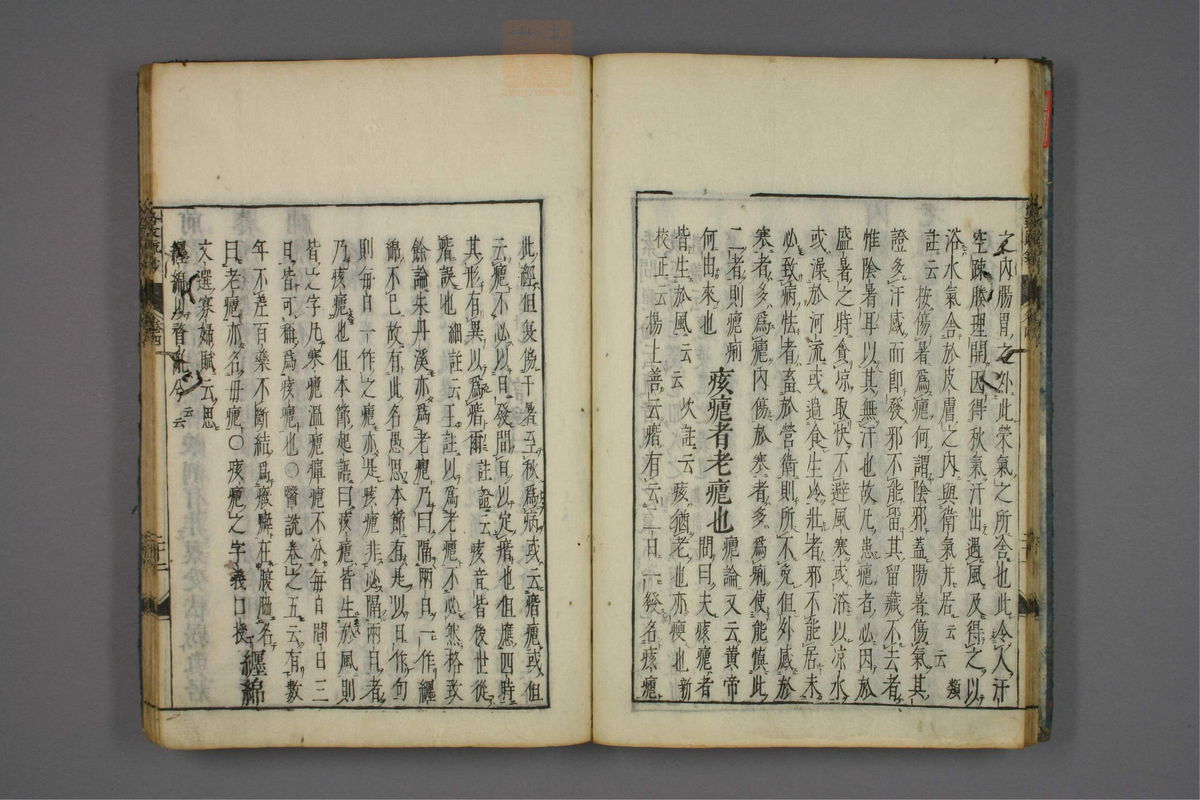 之内腸胃之外此榮氣之所舍也此令人汗
空疎腠理開因得秋氣汗出遇風及得之以
浴水氣舍於皮膚之内與衛氣并居云云 類
註云 按傷暑爲瘧何謂陰邪蓋陽暑傷氣其
證多汗感而即發邪不能留其留藏不去者
惟陰暑耳以其無汗也故凡患瘧者必因於
盛暑之時食凉取快不避風寒或浴以凉水
或澡於河流或過食生冷壯者邪不能居未
必致病怯者畜於營衛則所不免但外感於
寒者多爲瘧内傷於寒者多爲痢使能慎此
二者則瘧痢
何出來也
痎瘧者老瘧也
瘧論又云黄帝
問曰夫痎瘧者
皆生於風云云 次註云痎猶老也亦瘦也新
校正云楊上善云瘖有云二日一發名痎瘧
此經但夏傷于暑至秋爲病或云痎瘧或但
云瘧不必以日發間日以定瘖也但應四時
其形有異以爲瘖爾 註證云痎音皆後世從
瘖誤也 細註云王註以爲老瘧不必然格致
餘論朱丹溪亦爲老瘧乃曰隔兩日一作纏
綿不已故有此名愚思本節有是以日作句
則毎日一作之瘧亦是痎瘧非必隔兩日者
乃痎瘧也但本節起語曰痎瘧皆生於風則
皆之字凡寒瘧温瘧癉瘧不分毎日間日三
日皆可稱爲痎瘧也○醫説卷之五云有數
年不差百藥不斷結爲癥癖在腹脇名
曰老瘧亦名母瘧○痎瘧之字義口授
纏綿
文選寡婦賦云思
纏綿以瞀亂兮云云